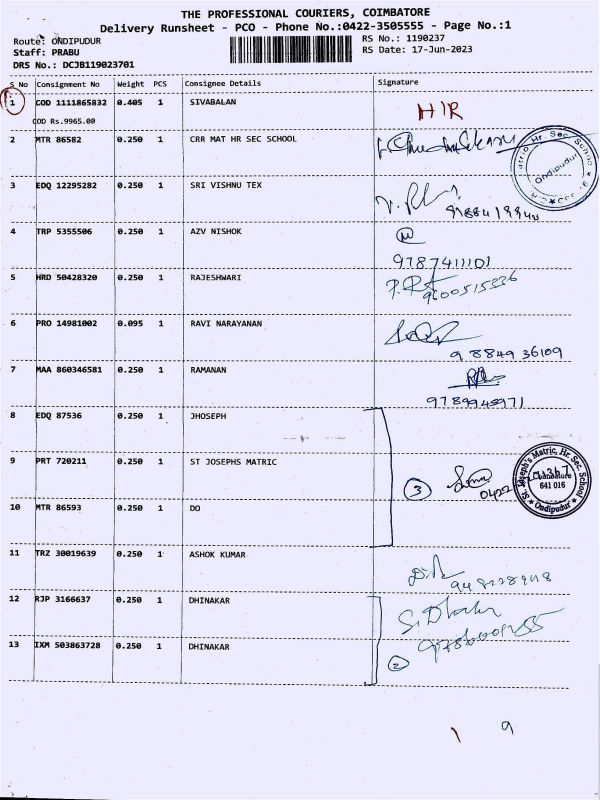 THE PROFESSIONAL COURIERS, COIMBATORE
Delivery Runsheet - PCO - Phone No.:0422-3505555 - Page No.:1
Route: ONDIPUDUR
RS No.: 1190237
Staff: PRABU
RS Date: 17-Jun-2023
DRS No.: DCJB119023701
S No Consignment No Weight PCS Consignee Details Signature
1 COD 1111865832 0.405 1 SIVABALAN
COD Rs.9965.00
2 MTR 86582 0.250 1 CRR MAT HR SEC SCHOOL
Hr. Sec. School
Ondipudur
3 EDQ 12295282 0.250 1 SRI VISHNU TEX
4 TRP 5355506 0.250 1 AZV NISHOK
9787411101
5 HRD 50428320 0.250 1 RAJESHWARI
9600515836
6 PRO 14981002 0.095 1 RAVI NARAYANAN
9884936109
7 MAA 860346581 0.250 1 RAMANAN
9789945971
8 EDQ 87536 0.250 1 JHOSEPH
9 PRT 720211 0.250 1 ST JOSEPHS MATRIC
3
0422
St. Joseph's Matric. Hr. Sec. School
641 016
Ondipudur
10 MTR 86593 0.250 1 DO
11 TRZ 30019639 0.250 1 ASHOK KUMAR
12 RJP 3166637 0.250 1 DHINAKAR
13 IXM 503863728 0.250 1 DHINAKAR
2
1 9